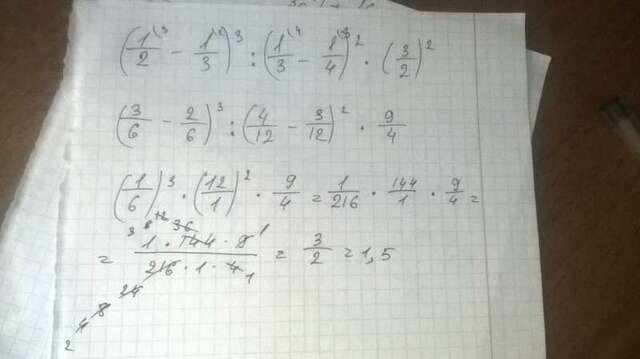 (1/2\3 − 1/3\2)³ : (1/3\4 − 1/4\3)² · (3/2)²
(3/6 − 2/6)³ : (4/12 − 3/12)² · 9/4
(1/6)³ · (12/1)² · 9/4 = 1/216 · 144/1 · 9/4 =
3 8 12 36 1
= 1 · 144 · 9 / 216 · 1 · 4 1 = 3/2 = 1,5
2 4 8 24